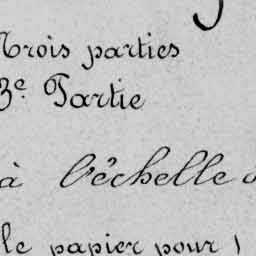 Trois parties
3e. Partie
à l'échelle
le papier pour